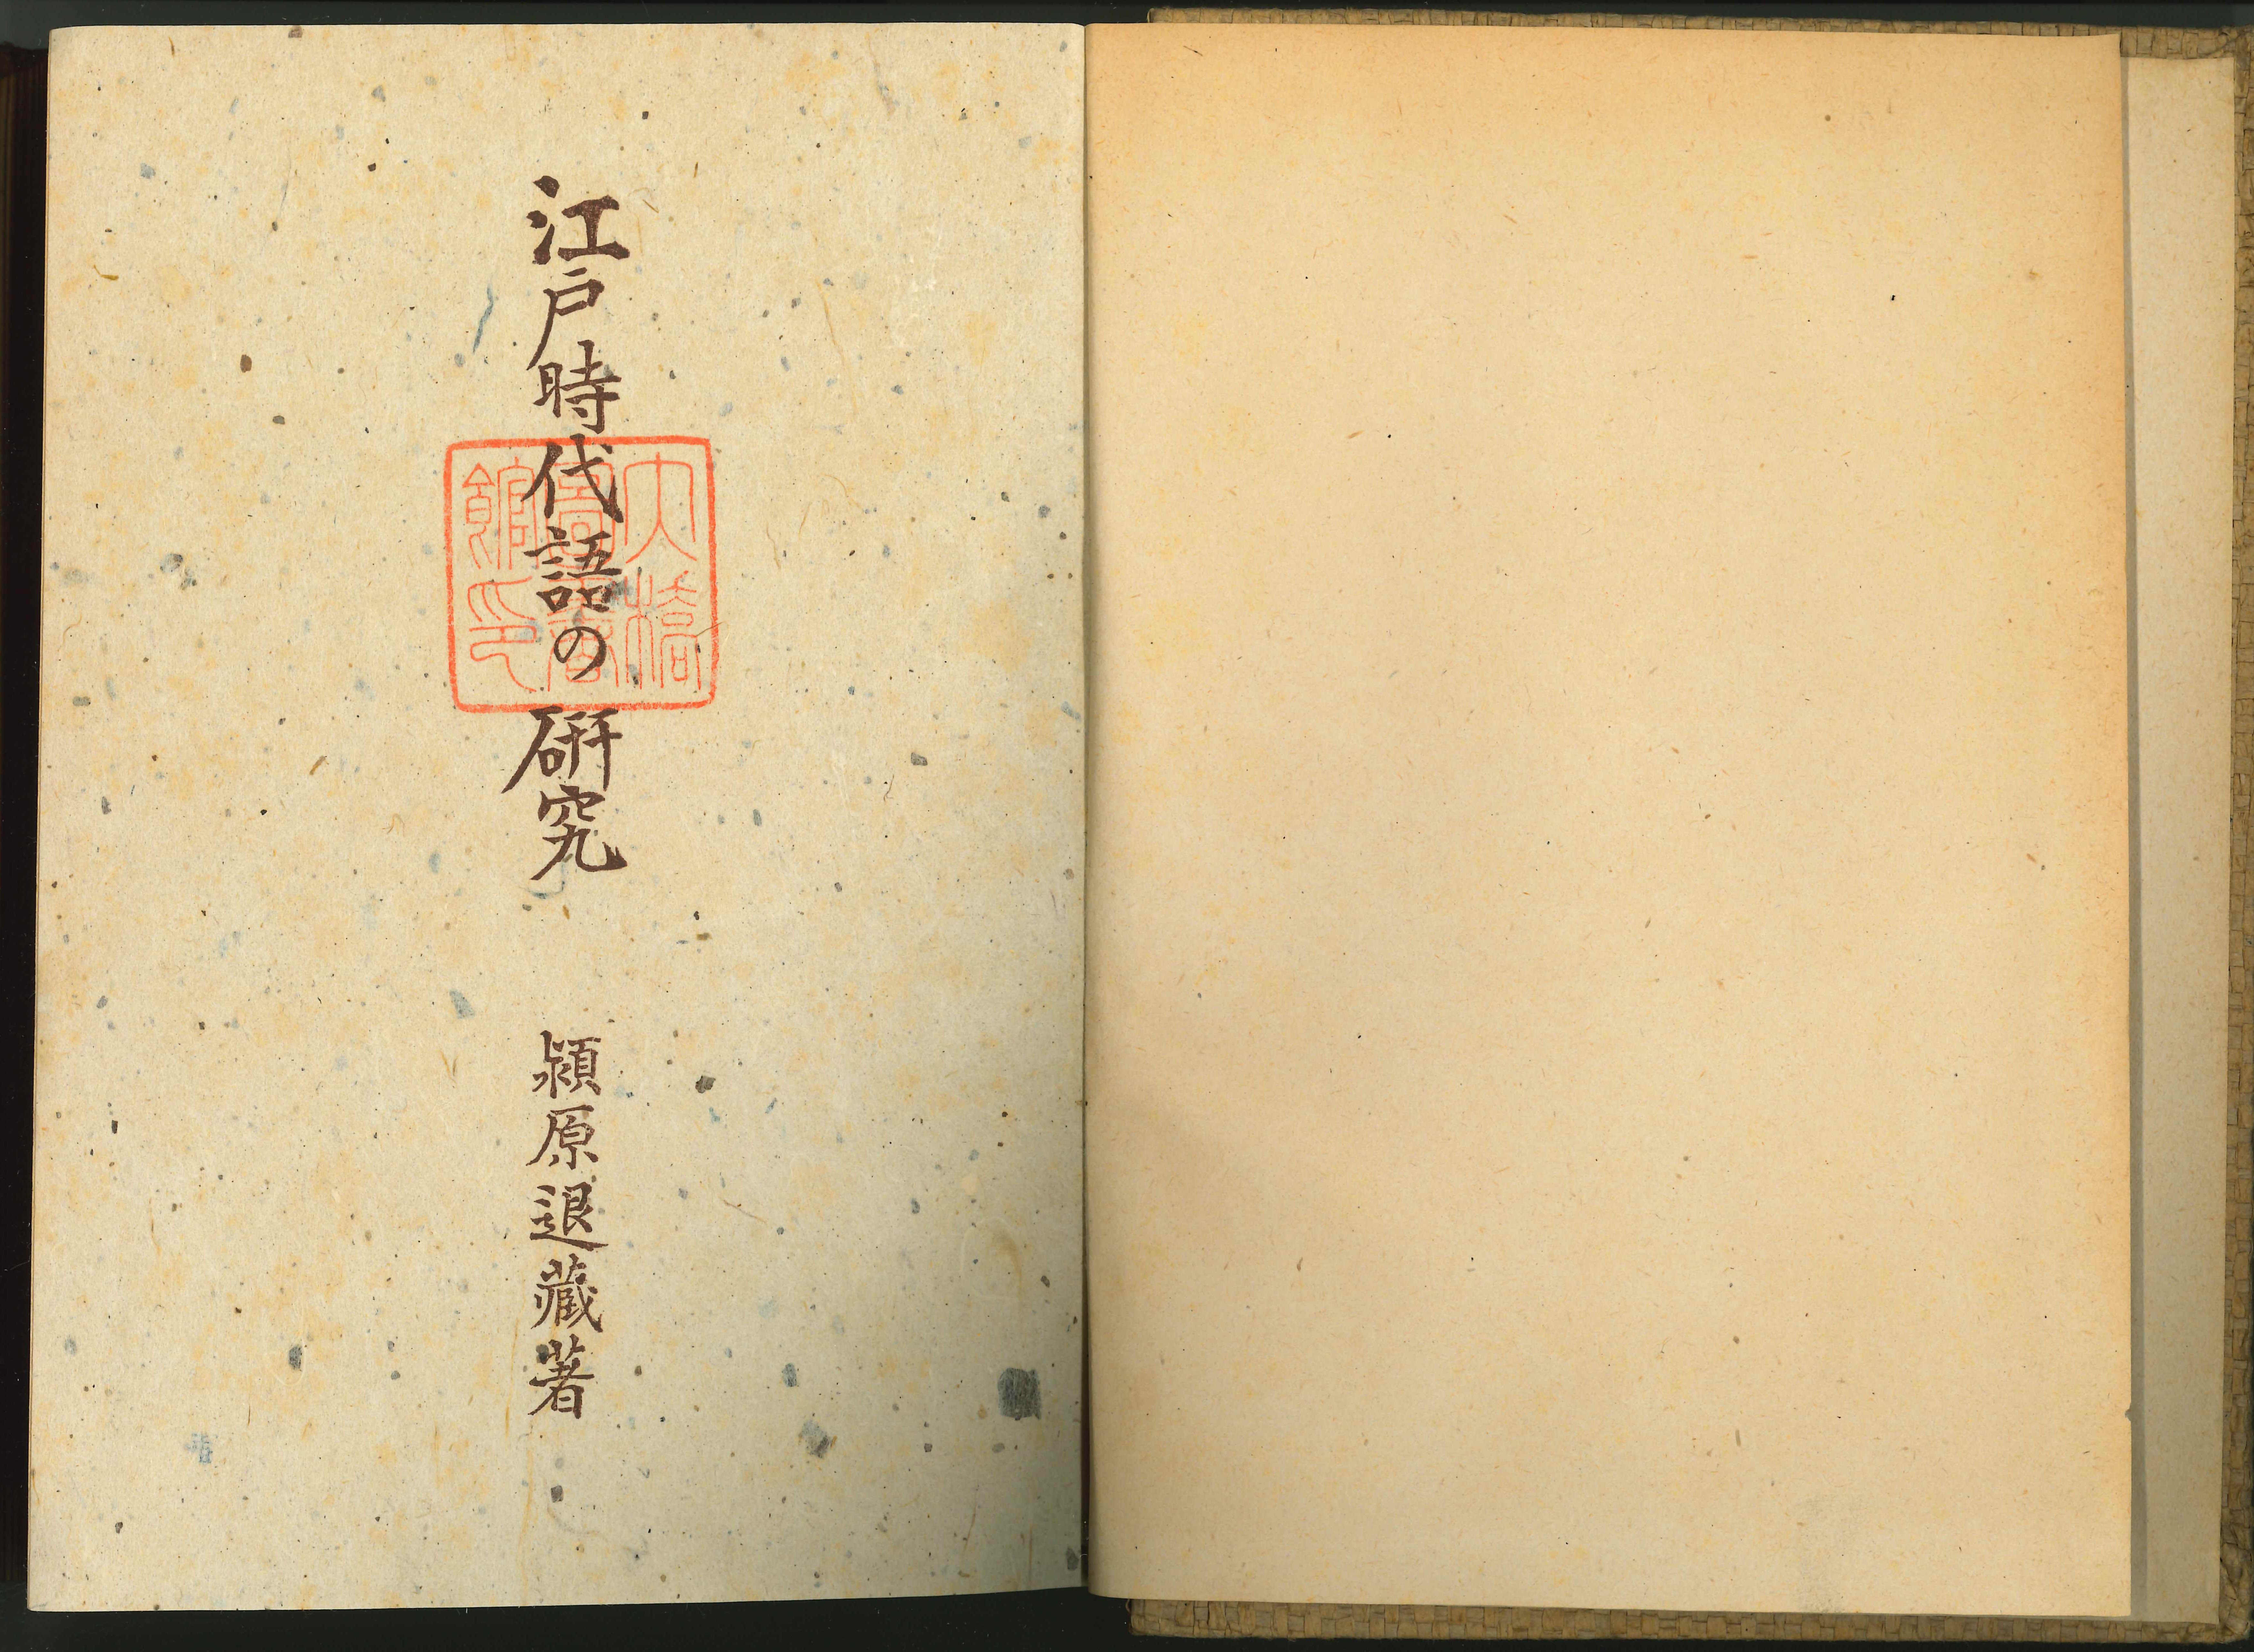 江戸時代語の研究
潁原退藏著
大橋
圖書
館印